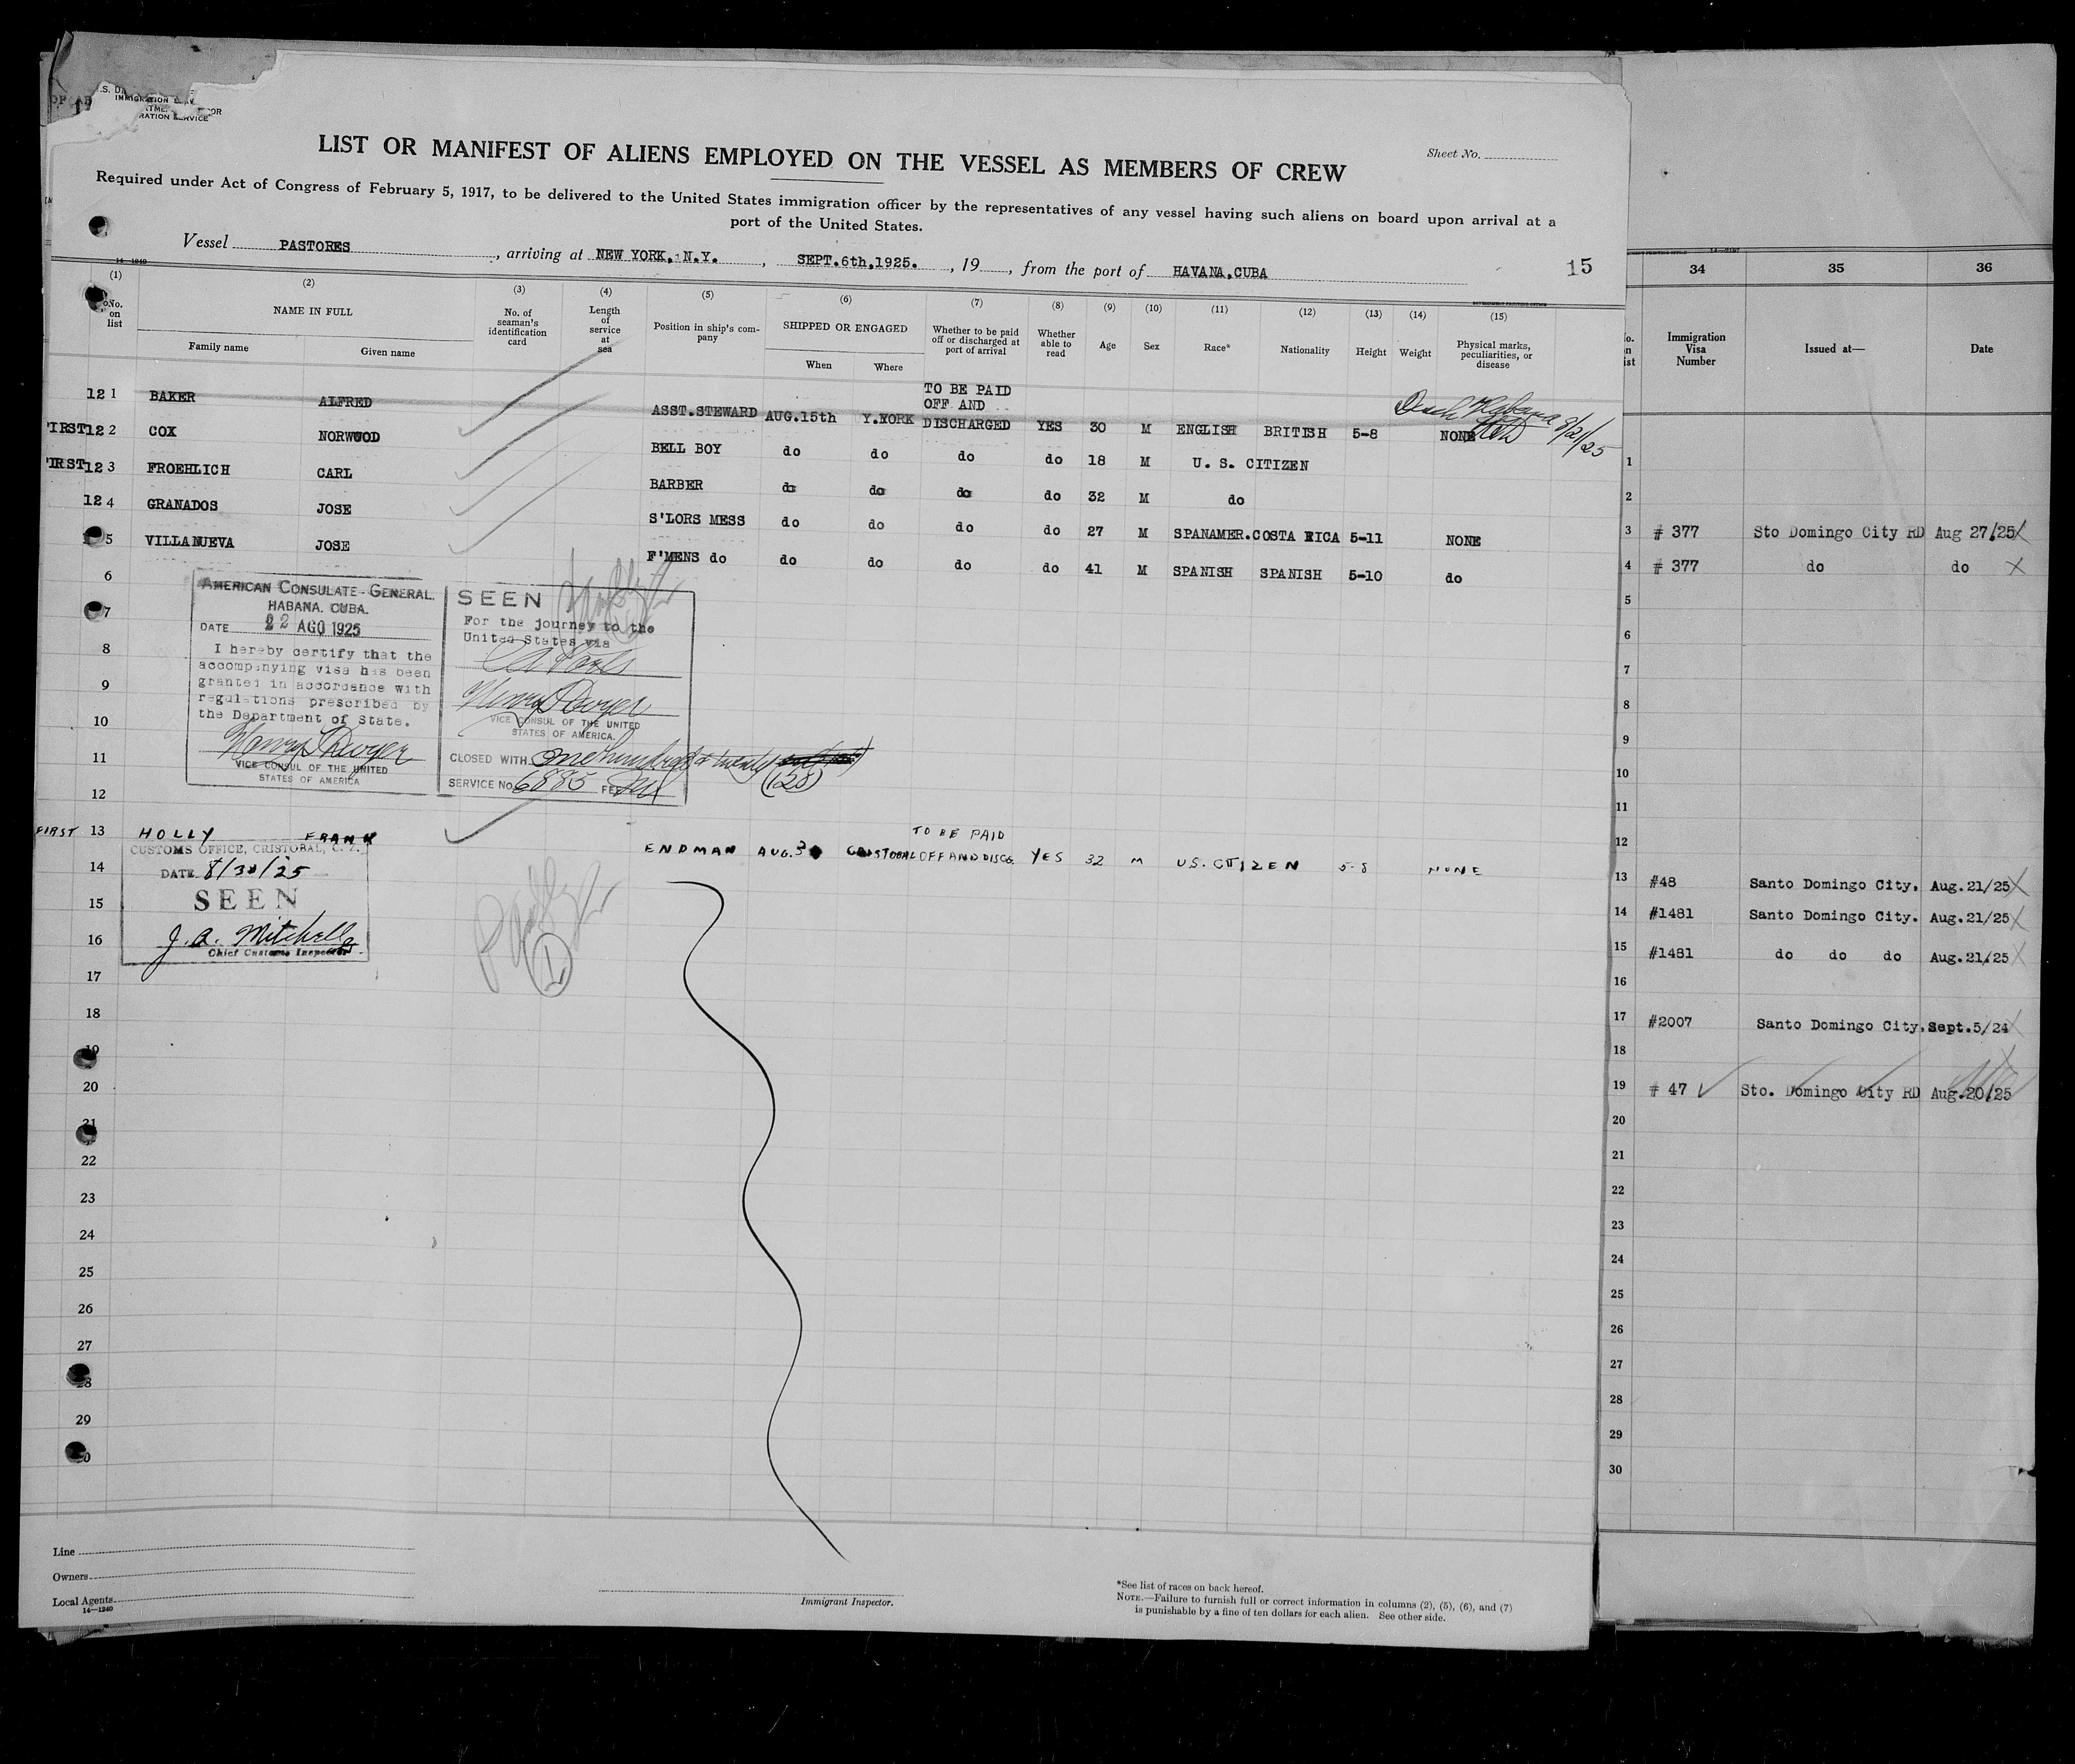 IMMIGRATION
RATION SERVICE
LIST OR MANIFEST OF ALIENS EMPLOYED ON THE VESSEL AS MEMBERS OF CREW
Sheet No.
Required under Act of Congress of February 5, 1917, to be delivered to the United States immigration officer by the representatives of any vessel having such aliens on board upon arrival at a
port of the United States.
Vessel PASTORES, arriving at NEW YORK, N.Y., SEPT.6th,1925., 19, from the port of HAVANA,CUBA 15
14—1240
(1) (2) (3) (4) (5) (6) (7) (8) (9) (10) (11) (12) (13) (14) (15)
No. on list
NAME IN FULL
Family name Given name
No. of seaman's identification card
Length of service at sea
Position in ship's company
SHIPPED OR ENGAGED
When Where
Whether to be paid off or discharged at port of arrival
Whether able to read
Age
Sex
Race*
Nationality
Height
Weight
Physical marks, peculiarities, or disease
TO BE PAID
OFF AND
12 1 BAKER ALFRED ASST.STEWARD AUG.15th Y.YORK DISCHARGED YES 30 M ENGLISH BRITISH 5-8 NONE
Habana 8/21/25
FIRST 12 2 COX NORWOOD BELL BOY do do do do 18 M U. S. CITIZEN
FIRST 12 3 FROEHLICH CARL BARBER do do do do 32 M do
12 4 GRANADOS JOSE S'LORS MESS do do do do 27 M SPANAMER. COSTA RICA 5-11 NONE
5 VILLANUEVA JOSE F'MENS do do do do do 41 M SPANISH SPANISH 5-10 do
6
AMERICAN CONSULATE-GENERAL.
HABANA. CUBA.
DATE 22 AGO 1925
I hereby certify that the
accompanying visa has been
granted in accordance with
regulations prescribed by
the Department of State.
Henry Dwyer
VICE CONSUL OF THE UNITED
STATES OF AMERICA
SEEN
For the journey to the
United States via
Henry Dwyer
VICE CONSUL OF THE UNITED
STATES OF AMERICA.
CLOSED WITH One hundred & twenty
(128)
SERVICE No. 6885 FEE
7
8
9
10
11
12
TO BE PAID
FIRST 13 HOLLY FRANK ENDMAN AUG. 30 CRISTOBAL OFF AND DISCG. YES 32 M U.S. CITIZEN 5-8 NONE
CUSTOMS OFFICE, CRISTOBAL, C. Z.
DATE 8/30/25
SEEN
J. A. Mitchell
Chief Customs Inspector
14
15
16
17
18
19
20
21
22
23
24
25
26
27
28
29
30
Line
Owners
Local Agents
14—1240
Immigrant Inspector.
*See list of races on back hereof.
NOTE.—Failure to furnish full or correct information in columns (2), (5), (6), and (7)
is punishable by a fine of ten dollars for each alien. See other side.
34 35 36
Immigration Visa Number
Issued at—
Date
1
2
3 # 377 Sto Domingo City RD Aug 27/25
4 # 377 do do
5
6
7
8
9
10
11
12
13 #48 Santo Domingo City. Aug.21/25
14 #1481 Santo Domingo City. Aug.21/25
15 #1481 do do do Aug.21/25
16
17 #2007 Santo Domingo City. Sept.5/24
18
19 # 47 Sto. Domingo City RD Aug.20/25
20
21
22
23
24
25
26
27
28
29
30